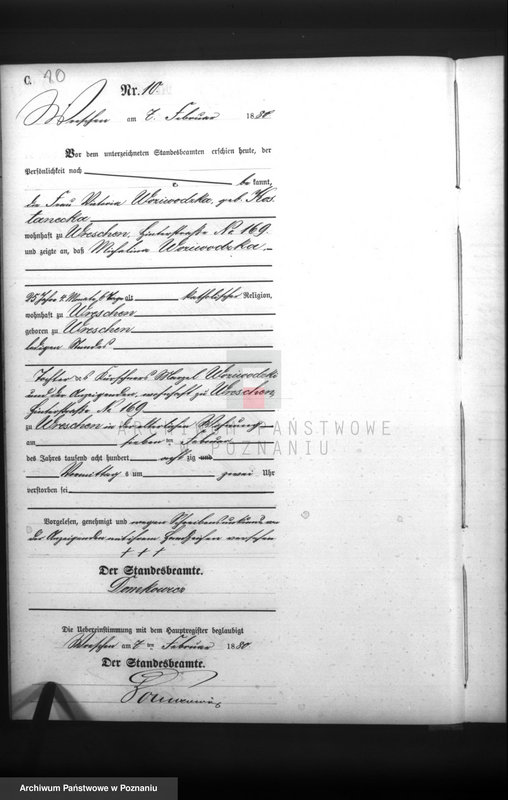 C. 20
Nr. 10.
Wreschen am 7. Februar 1880.
Vor dem unterzeichneten Standesbeamten erschien heute, der
Persönlichkeit nach
bekannt,
die Frau Valeria Woziwodzka, geb. Kos
tanecka
wohnhaft zu Wreschen, Hinterstraße Nr 169.
und zeigte an, daß Michalina Woziwodzka
25 Jahre 4 Monate Tage alt katholischer Religion,
wohnhaft zu Wreschen
geboren zu Wreschen
ledigen Standes
Tochter des Kürschners Marzel Woziwodzki
und der Anzeigenden, wohnhaft zu Wreschen,
Hinterstraße Nr 169
zu Wreschen in elterlicher Wohnung
am sieben ten Februar
des Jahres tausend acht hundert acht zig und
Vormittags um zwei Uhr
verstorben sei
Vorgelesen, genehmigt und wegen Schreibensunkunde von
der Anzeigenden mit ihrem Handzeichen versehen
+ + +
Der Standesbeamte.
Die Uebereinstimmung mit dem Hauptregister beglaubigt
Wreschen am 7 ten Februar 1880.
Der Standesbeamte.
ARCHIWUM PAŃSTWOWE
POZNANIU
Archiwum Państwowe w Poznaniu